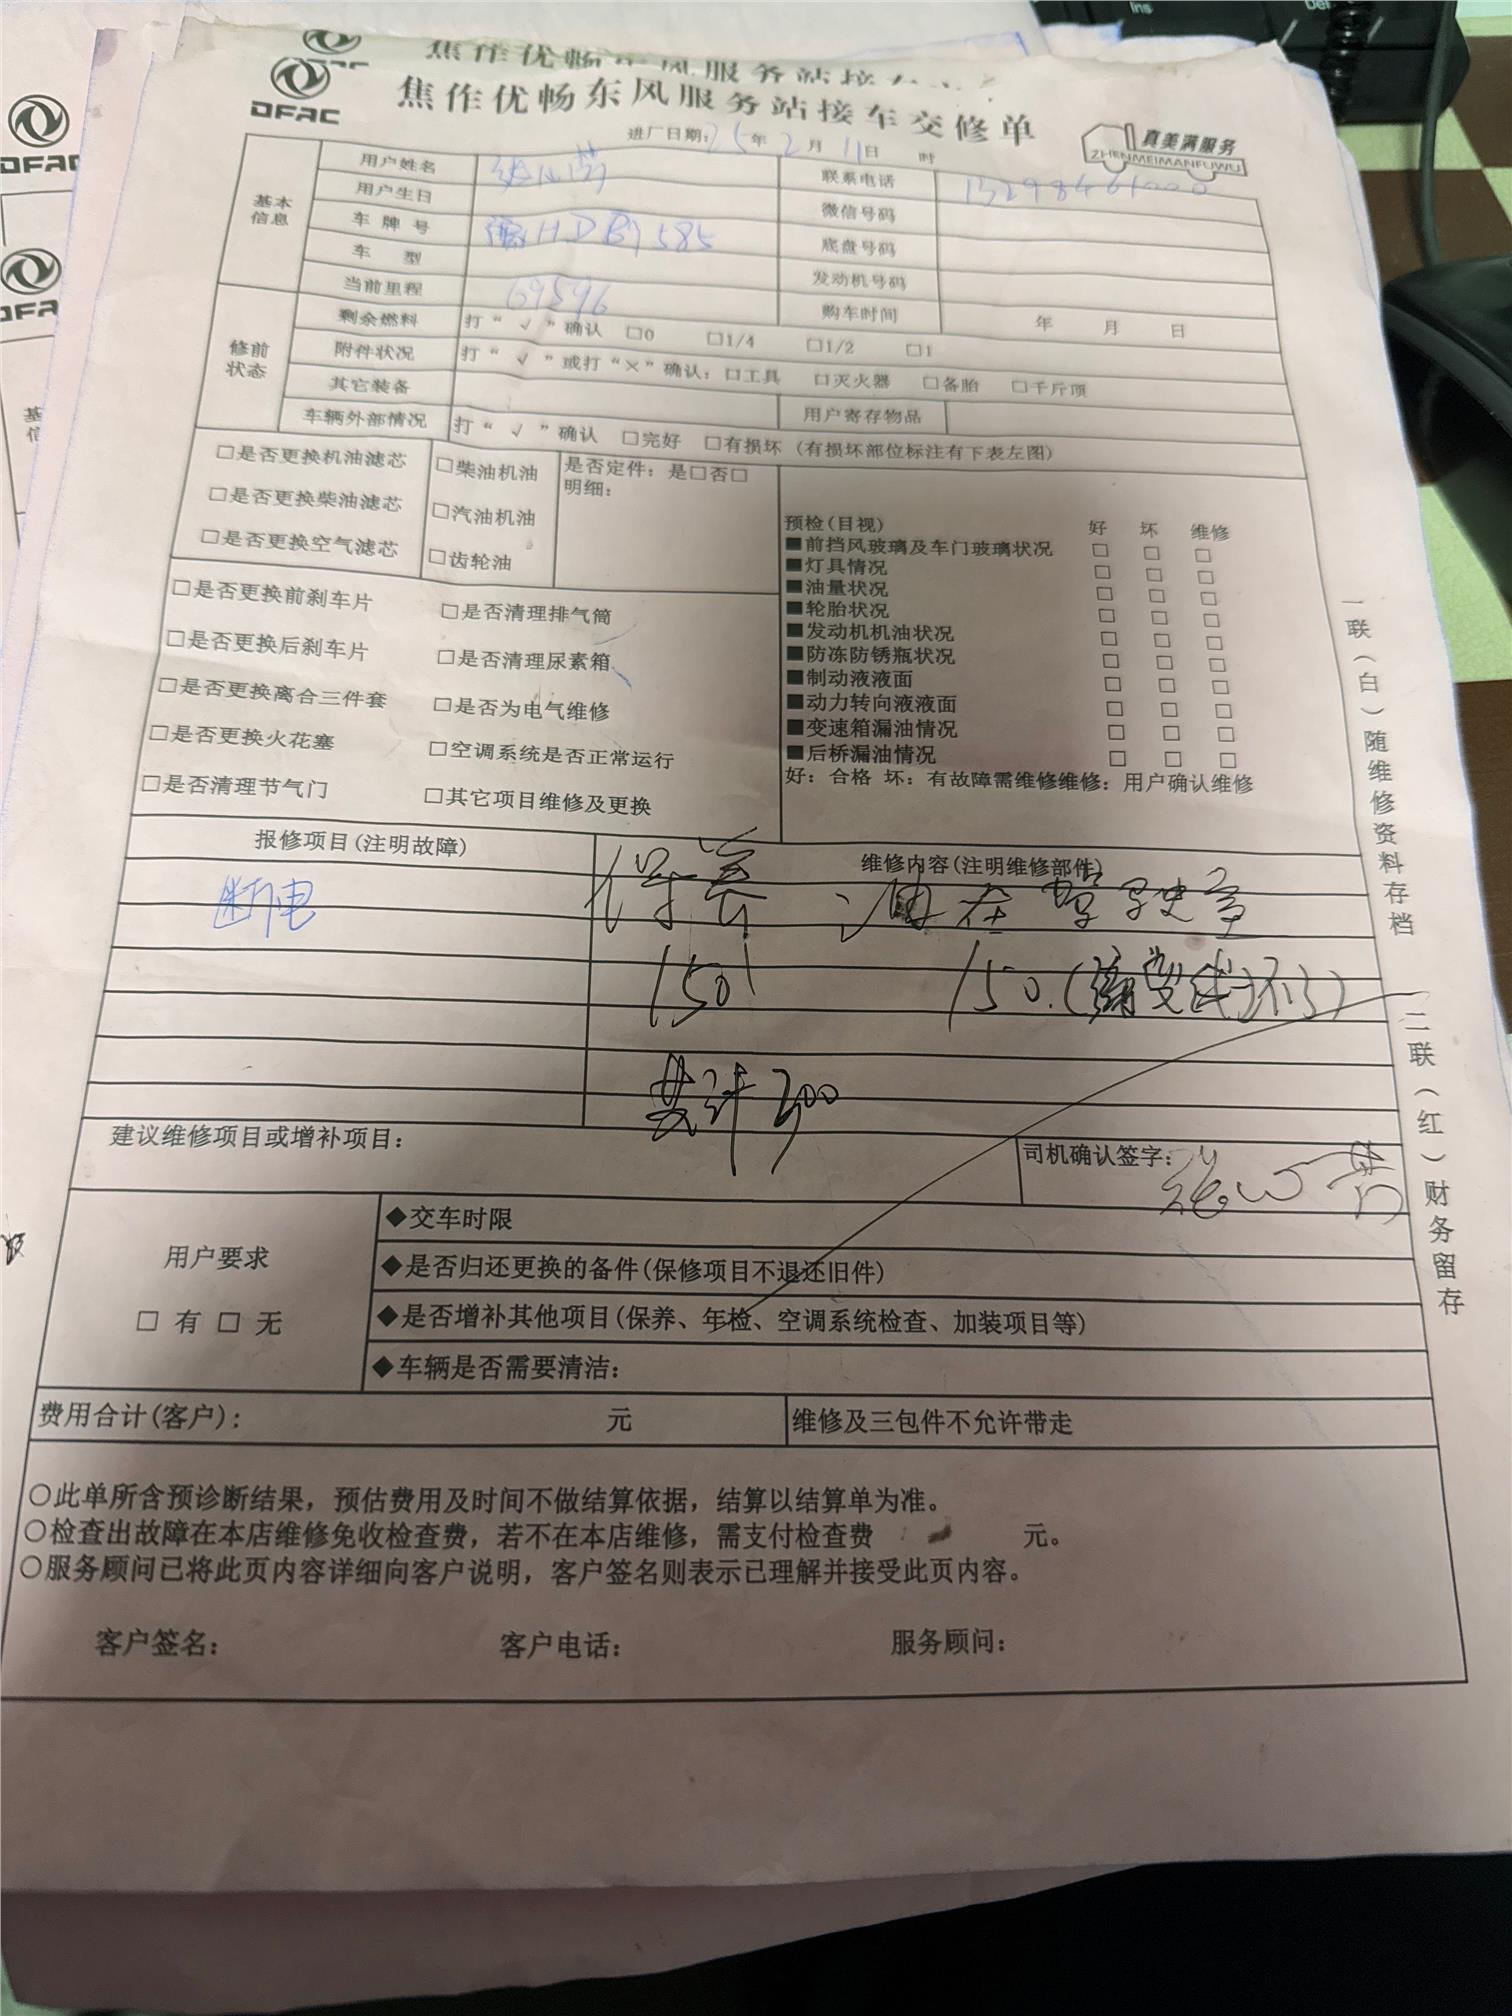 焦作优畅东风服务站接车
DFAC
焦作优畅东风服务站接车交修单
真美满服务
ZHENMEIMANFUWU
进厂日期:25年2月11日 时
基本信息
用户姓名
联系电话
用户生日
微信号码
车牌号 HDB1585
底盘号码
车型
发动机号码
当前里程 69596
购车时间 年 月 日
修前状态
剩余燃料 打“√”确认 □0 □1/4 □1/2 □1
附件状况 打“√”或打“×”确认: □工具 □灭火器 □备胎 □千斤顶
其它装备
用户寄存物品
车辆外部情况 打“√”确认 □完好 □有损坏 (有损坏部位标注有下表左图)
□是否更换机油滤芯
□是否更换柴油滤芯
□是否更换空气滤芯
□柴油机油
□汽油机油
□齿轮油
是否定件: 是□否□
明细:
□是否更换前刹车片
□是否清理排气筒
□是否更换后刹车片
□是否清理尿素箱
□是否更换离合三件套
□是否为电气维修
□是否更换火花塞
□空调系统是否正常运行
□是否清理节气门
□其它项目维修及更换
预检(目视) 好 坏 维修
■前挡风玻璃及车门玻璃状况 □ □ □
■灯具情况 □ □ □
■油量状况 □ □ □
■轮胎状况 □ □ □
■发动机机油状况 □ □ □
■防冻防锈瓶状况 □ □ □
■制动液液面 □ □ □
■动力转向液液面 □ □ □
■变速箱漏油情况 □ □ □
■后桥漏油情况 □ □ □
好: 合格 坏: 有故障需维修维修: 用户确认维修
报修项目(注明故障)
维修内容(注明维修部件)
断电
保养
150
150
共计300
建议维修项目或增补项目:
司机确认签字:
用户要求
□ 有 □ 无
◆交车时限
◆是否归还更换的备件(保修项目不退还旧件)
◆是否增补其他项目(保养、年检、空调系统检查、加装项目等)
◆车辆是否需要清洁:
费用合计(客户): 元
维修及三包件不允许带走
○此单所含预诊断结果，预估费用及时间不做结算依据，结算以结算单为准。
○检查出故障在本店维修免收检查费，若不在本店维修，需支付检查费 元。
○服务顾问已将此页内容详细向客户说明，客户签名则表示已理解并接受此页内容。
客户签名:
客户电话:
服务顾问:
一联(白)随维修资料存档
二联(红)财务留存